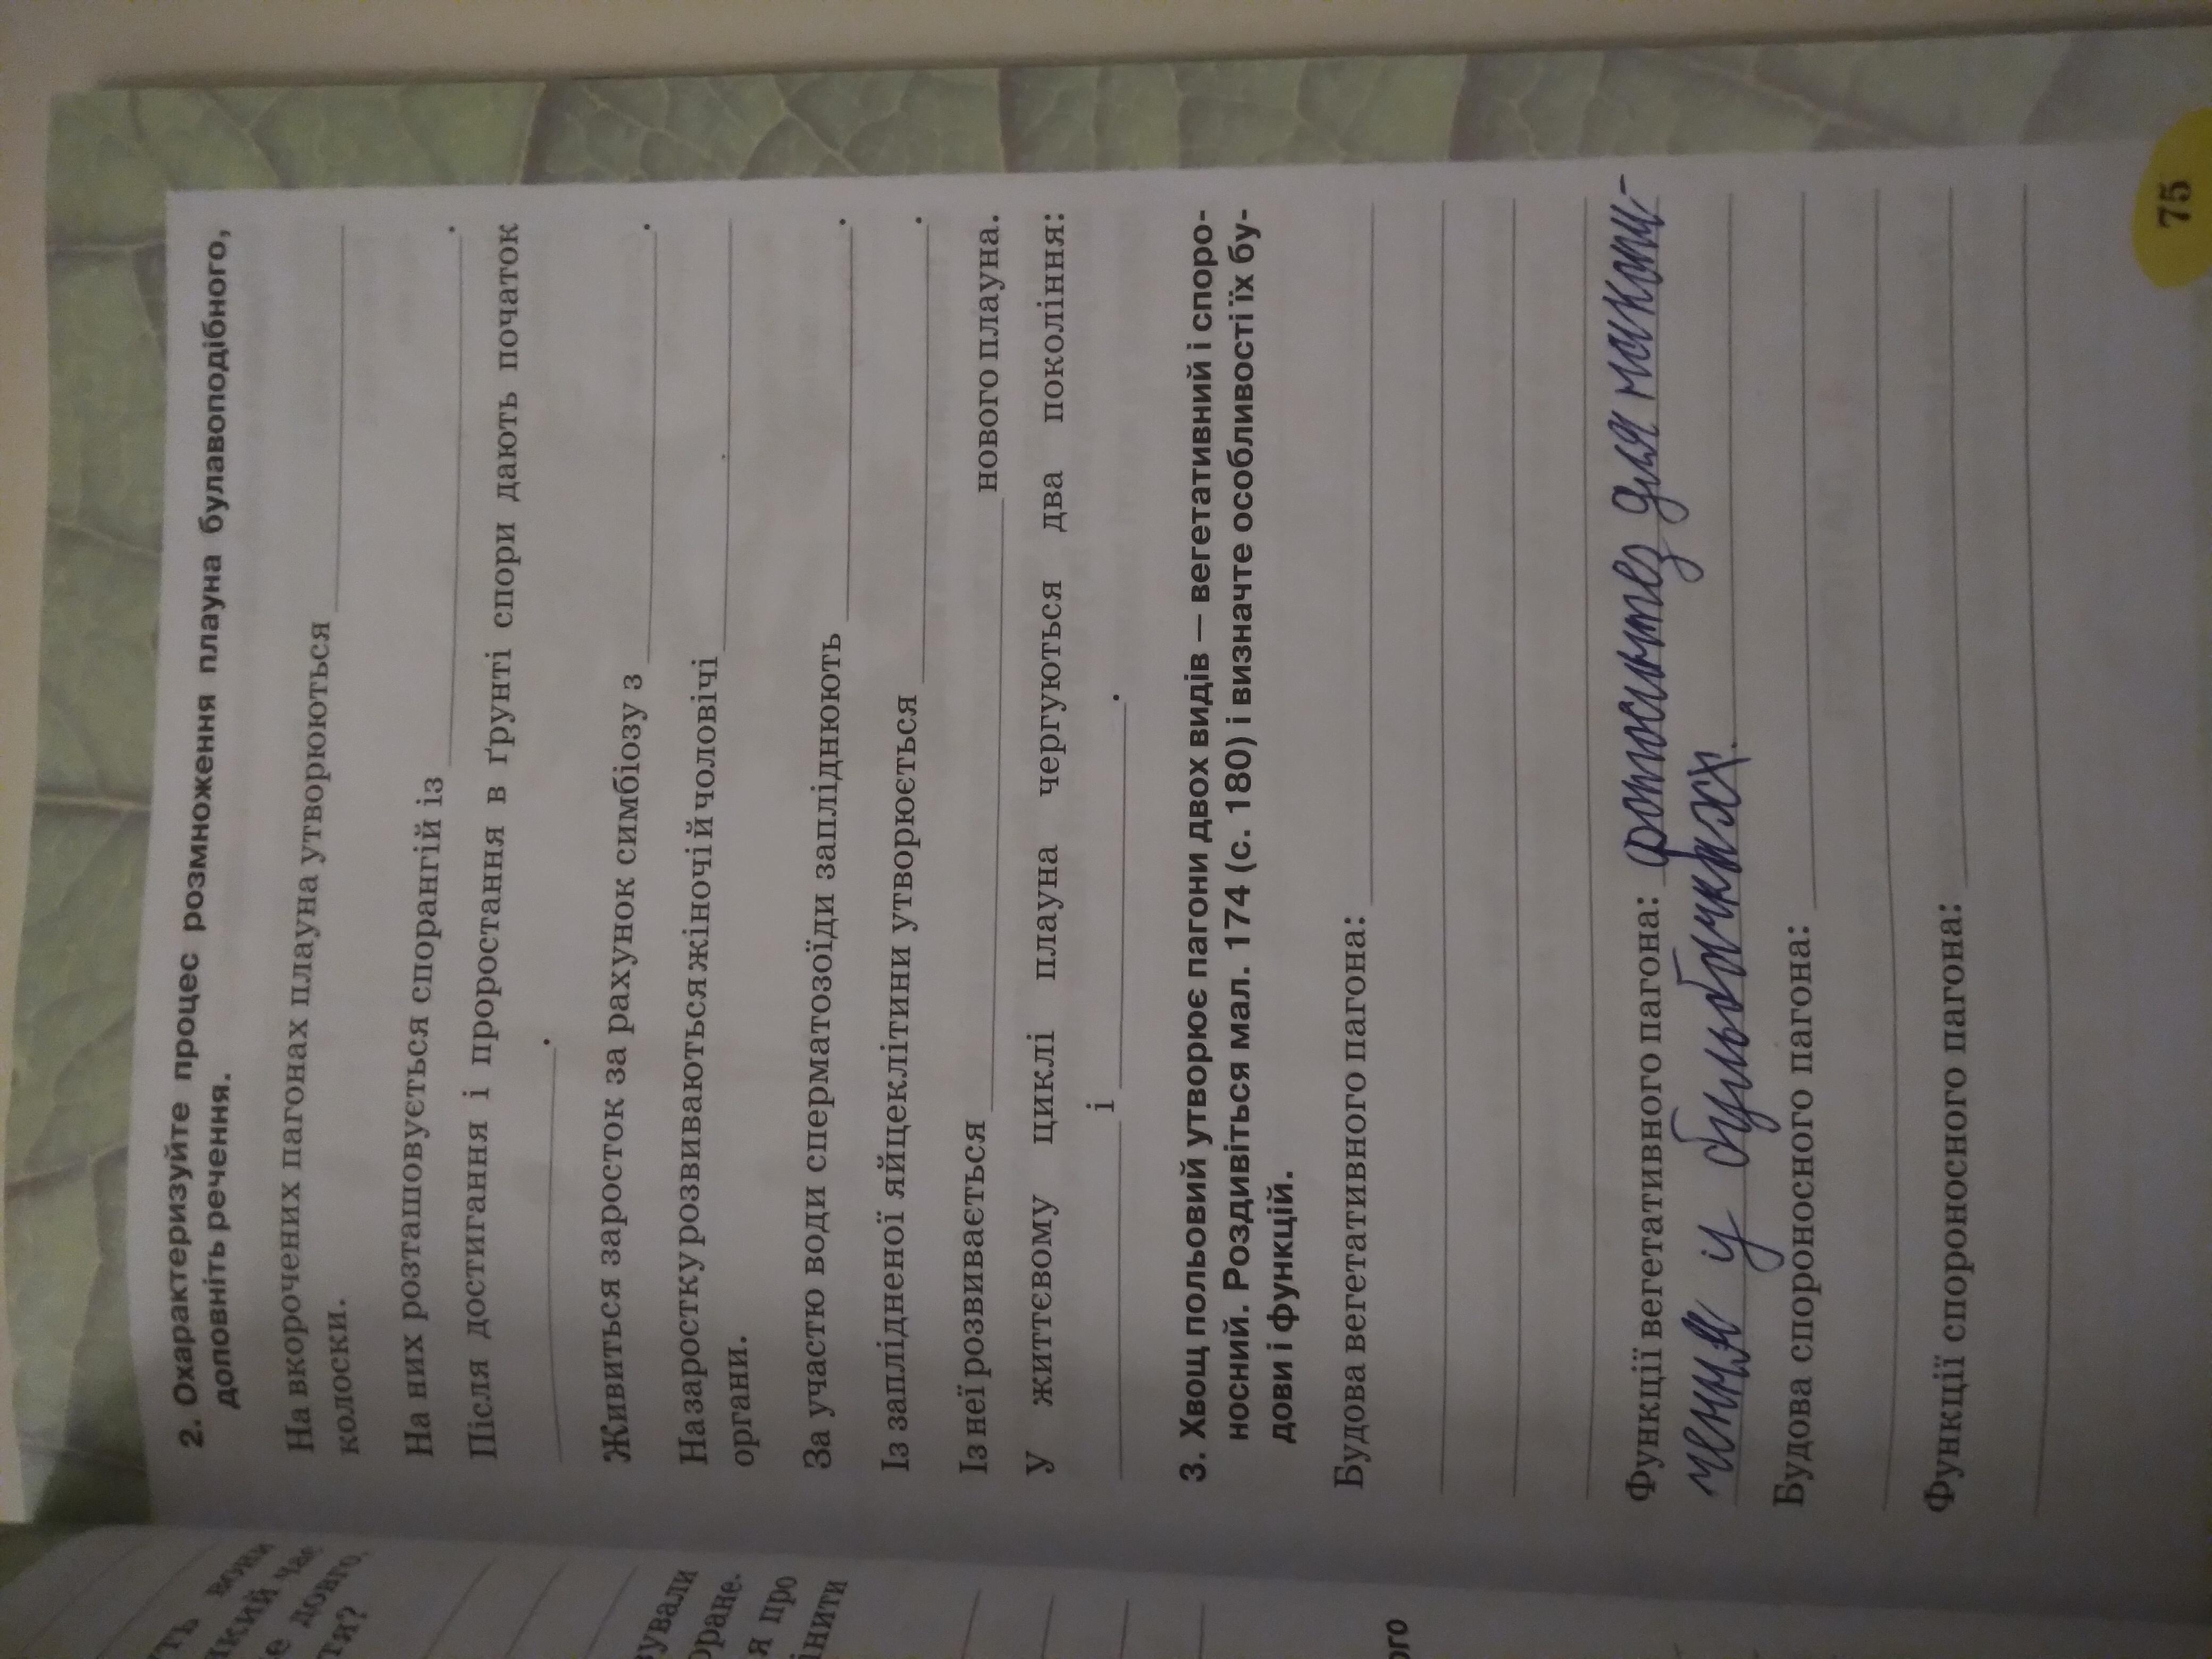 2. Охарактеризуйте процес розмноження плауна булавоподібного,
доповніть речення.
На вкорочених пагонах плауна утворюються
колоски.
На них розташовується спорангій із .
Після достигання і проростання в ґрунті спори дають початок
.
Живиться заросток за рахунок симбіозу з .
На заростку розвиваються жіночі й чоловічі
органи.
За участю води сперматозоїди запліднюють .
Із заплідненої яйцеклітини утворюється .
Із неї розвивається нового плауна.
У життєвому циклі плауна чергуються два покоління:
і .
3. Хвощ польовий утворює пагони двох видів — вегетативний і споро-
носний. Роздивіться мал. 174 (с. 180) і визначте особливості їх бу-
дови і функцій.
Будова вегетативного пагона:
Функції вегетативного пагона: фотосинтез для накопи-
чення у бульбочках.
Будова спороносного пагона:
Функції спороносного пагона:
75
ть вони
який час
е довго,
тя?
зували
оране.
я про
інити
ого